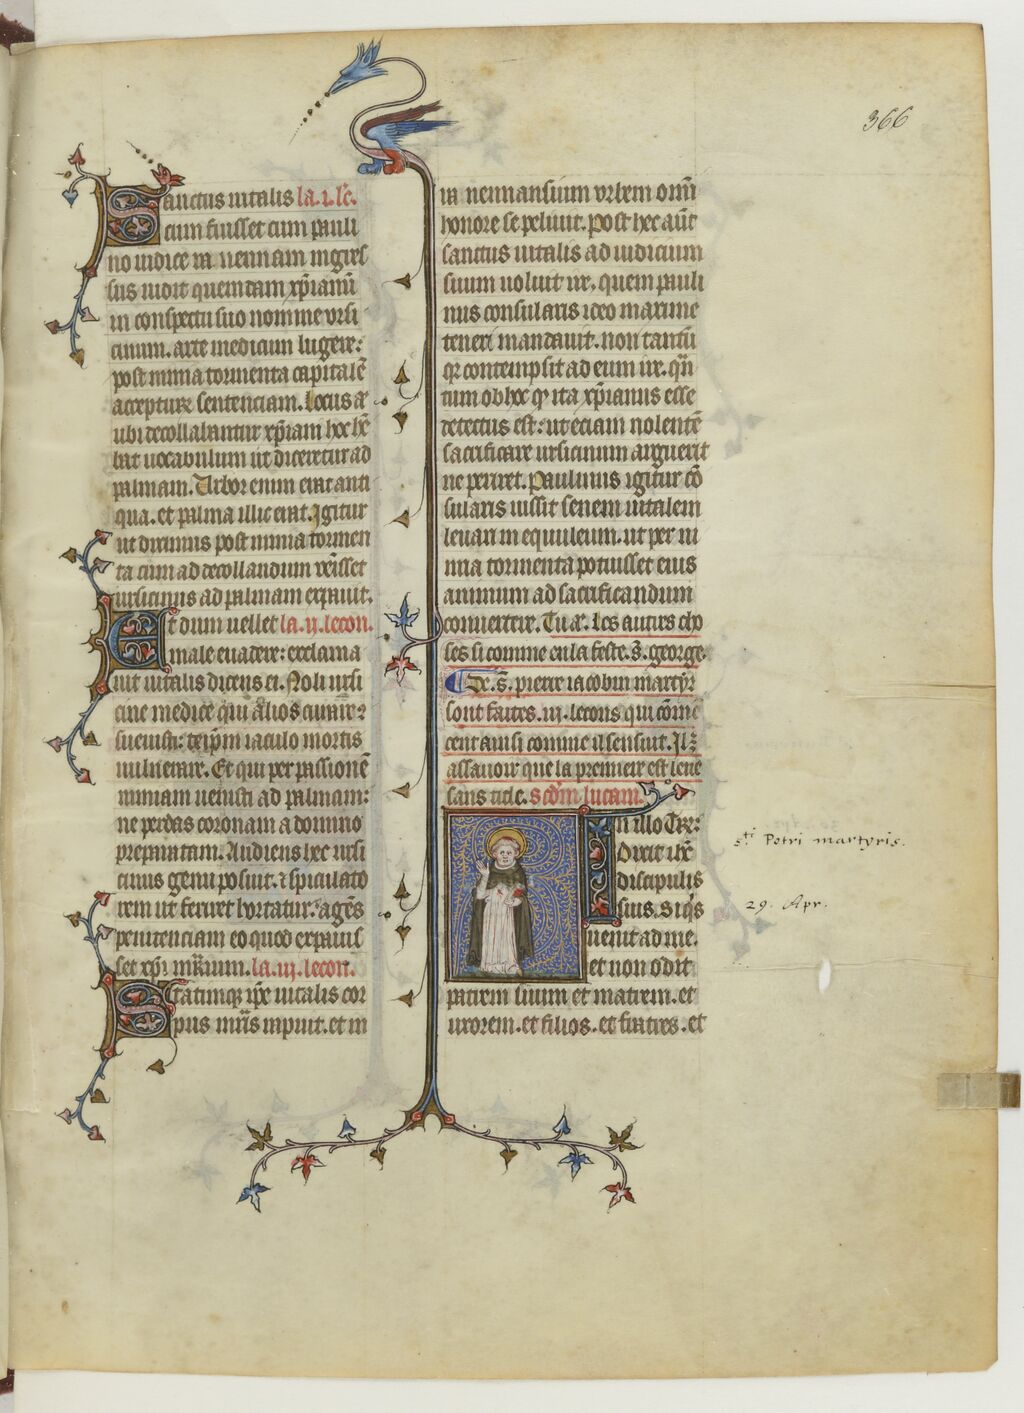 366
Sanctus uitalis la .i. lc̄.
cum fuisset cum pauli
no iudice in rauennam ingres
sus uidit quemdam xp̄ianū
in conspectu suo nomine ursi
cinum. arte medicum lugere:
post nimia tormenta capitalē
accepturum sententiam. Locus
ubi decollabantur xp̄iani hoc
bat uocabulum ut diceretur ad
palmam. Arbor enim erat anti
qua. et palma illic erat. Igitur
ut diximus post nimia tormen
ta cum ad decollandum uēisset
ursicinus ad palmam expauit.
Et dum uellet la .ij. lecon.
male euadere: exclama
uit uitalis dicens ei. Noli ursi
cine medice qui alios curare
sueuisti: teip̄m iaculo mortis
uulnerare. Et qui per passionē
nimiam uenisti ad palmam:
ne perdas coronam a domino
preparatam. Audiens hec ursi
cinus genu posuit. et spiculato
rem ut feriret hortatur. agēs
penitenciam eo quod expauis
set xp̄i mr̄ium. la .iij. lecon.
Statimque ip̄e uitalis cor
pus mr̄is rapuit. et in
ra uennansium urbem omni
honore sepeliuit. Post hec aūt
sanctus uitalis ad iudicium
suum noluit ire. quem pauli
nus consularis ideo maxime
teneri mandauit. non tantū
q̄ contempsit ad eum ire. qn̄
tum ob hoc q ita xp̄ianus esse
detectus est: ut etiam nolentē
sacrificare ursicinum argueret
ne periret. Paulinus igitur cō
sularis iussit senem uitalem
leuari in equuleum. ut per ni
mia tormenta potuisset eius
animum ad sacrificandum
conuertere. Tu aꝰ. Les autres cho
ses si comme en la feste .s̄. george.
De .s̄. pierre iacobin martyr
sont faites .iij. lecons qui cōme
cent ainsi comme il sensuit.
assauoir que la premiere est leue
sans title. scd̄m lucam.
In illo tꝑe:
Dixit ih̄c
discipulis
suis. Si q̄s
uenit ad me.
et non odit
patrem suum et matrem. et
uxorem. et filios. et fratres. et
s.ti Petri martyris.
29. Apr.